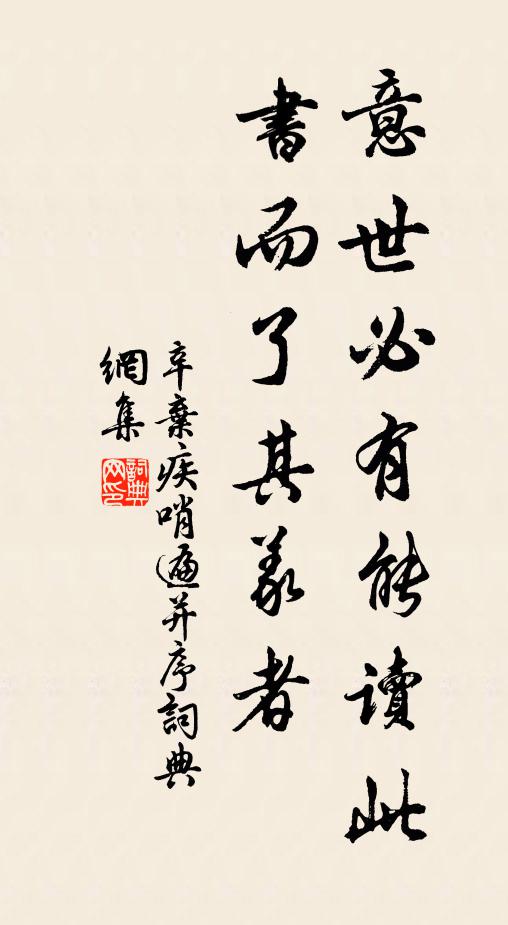 意世必有能讀此
書而了其義者
辛棄疾哨遍并序詞典
網集
詞典网印